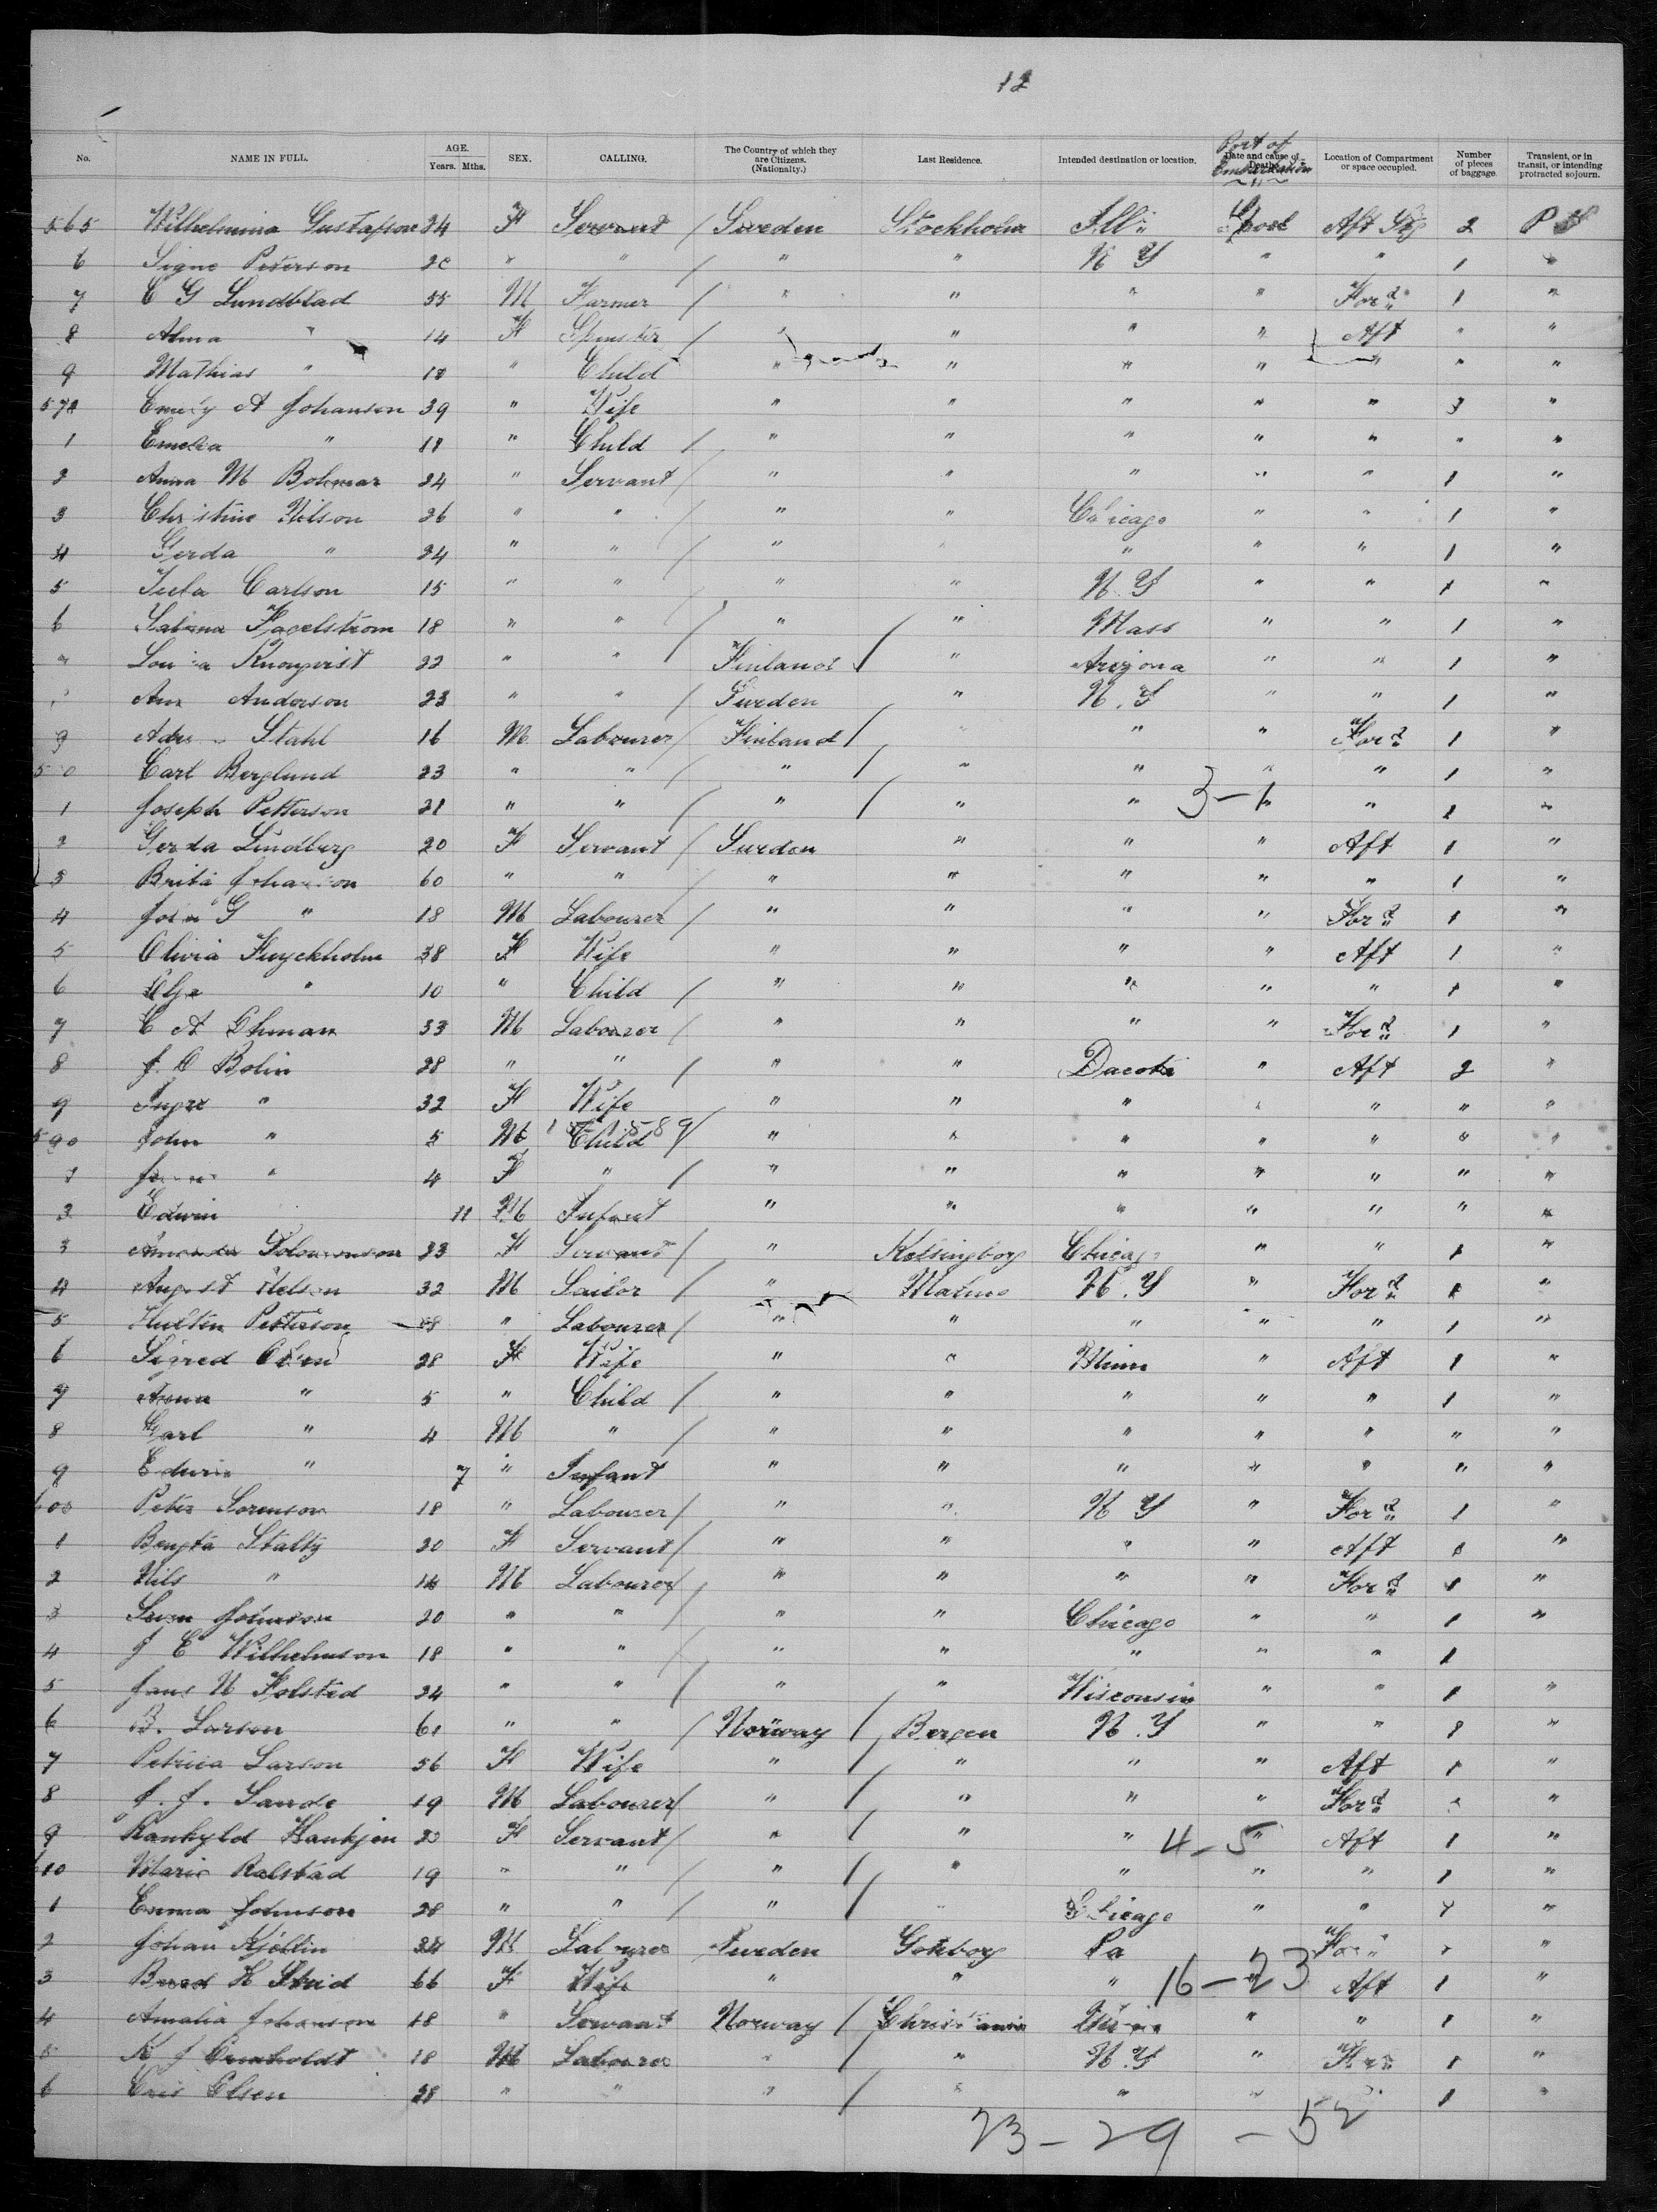 12
No. NAME IN FULL. AGE. Years. Mths. SEX. CALLING. The Country of which they are Citizens. (Nationalty.) Last Residence. Intended destination or location. Date and cause of Death. Port of Embarkation Location of Compartment or space occupied. Number of pieces of baggage. Transient, or in transit, or intending protracted sojourn.
565 Wilhelmina Gustafson 24 F Servant / Sweden Stockholm Ill: Lpool Aft Stg 2 P S
6 Signe Peterson 20 " " / " " N Y " " 1 "
7 C G Lundblad 55 M Farmer / " " " " For'd 1 "
8 Alma " 14 F Spinster / " " " " Aft " "
9 Mathias " " Child " " " " " " "
Emily A Johanson 39 " Wife " " " " " 3 "
1 Emelia " " Child / " " " " " " "
2 Anna M 24 " Servant / " " " " " 1 "
3 Christine Nilson 26 " " / " " Chicago " " 1 "
4 Gerda " 24 " " / " " " " " 1 "
5 Carlson 15 " " " " N Y " " 1 "
6 Hagelstrom 18 " " / " / " Mass " " 1 "
22 " " Finland / " Arizona " " 1 "
Anderson 23 " " / Sweden " N. Y " " 1 "
9 Stahl 16 M Labourer / Finland / " " " For'd 1 "
Carl Berglund 23 " " / " / " " " " 1 "
1 Joseph Petterson 21 " " / " / " " 3-1 " " 1 "
2 Gerda Lindberg 20 F Servant / Sweden " " " Aft 1 "
3 Brita 60 " " / " " " " " 1 "
4 G " 18 M Labourer / " " " " For'd 1 "
5 Olivia 38 F Wife " " " " Aft 1 "
6 " 10 " Child / " " " " " 1 "
7 C A 33 M Labourer / " " " " For'd 1 "
8 J. O Bolin 28 " " / " " Dacota " Aft 2 "
9 " 32 F Wife " " " " " " "
590 John " 5 M Child / " " " " " " "
" 4 F " / " " " " " " "
2 Edwin 11 M Infant " " " " " " "
3 23 F Servant / " Chicago " " 1 "
4 August Nelson 32 M Sailor / " Malmo N. Y " For'd 1 "
5 Petterson " Labourer / " " " " " 1 "
6 Sigred 28 F Wife " " Minn " Aft 1 "
7 Anna " 5 " Child / " " " " " 1 "
8 Carl " 4 M " / " " " " " " "
9 Edwin " 7 " Infant " " " " " " "
600 Peter Sorenson 18 " Labourer / " " N Y " For'd 1 "
1 Bengta 20 F Servant / " " " " Aft 1 "
2 Nils " M Labourer / " " " " For'd 1 "
3 Johnson 20 " " / " " Chicago " " 1 "
4 J E Wilhelmson 18 " " / " " " " " 1
5 Jans N Holsted 24 " " / " " Wisconsin " " 1 "
6 B. Larson 61 " " / Norway / Bergen N. Y " " "
7 Larson 56 F Wife " / " " " Aft 1 "
8 J. J. Sande 19 M Labourer / " / " " " For'd "
9 F Servant / " / " " 4-5 " Aft 1 "
610 Marie Ralstad 19 " " / " / " " " " 1 "
1 Emma Johnson 28 " " / " / Chicago " " "
2 Johan Kjellin M Labourer Sweden Gotborg Pa For'd "
3 66 F Wife " " " 16-23 Aft 1 "
4 Amalia Johanson 18 " Servant Norway / Christiania " " 1 "
5 K J 18 M Labourer " / " N. Y " For'd 1 "
6 Olsen " " " / " " " " 1 "
23 - 29 - 52